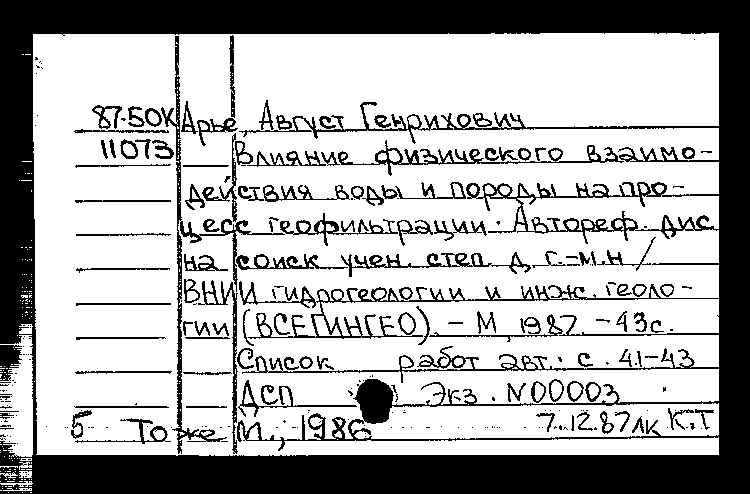 87-50К Арье, Август Генрихович
11073 Влияние физического взаимо-
действия воды и породы на про-
цесс геофильтрации: Автореф. дис
на соиск учен. степ. д. г.-м.н /
ВНИИ гидрогеологии и инж. геоло-
гии (ВСЕГИНГЕО). - М, 1987. - 43с.
Список работ авт.: с. 41-43
ДСП Экз. N00003
5 То же М., 1986 7.12.87лк К.Т